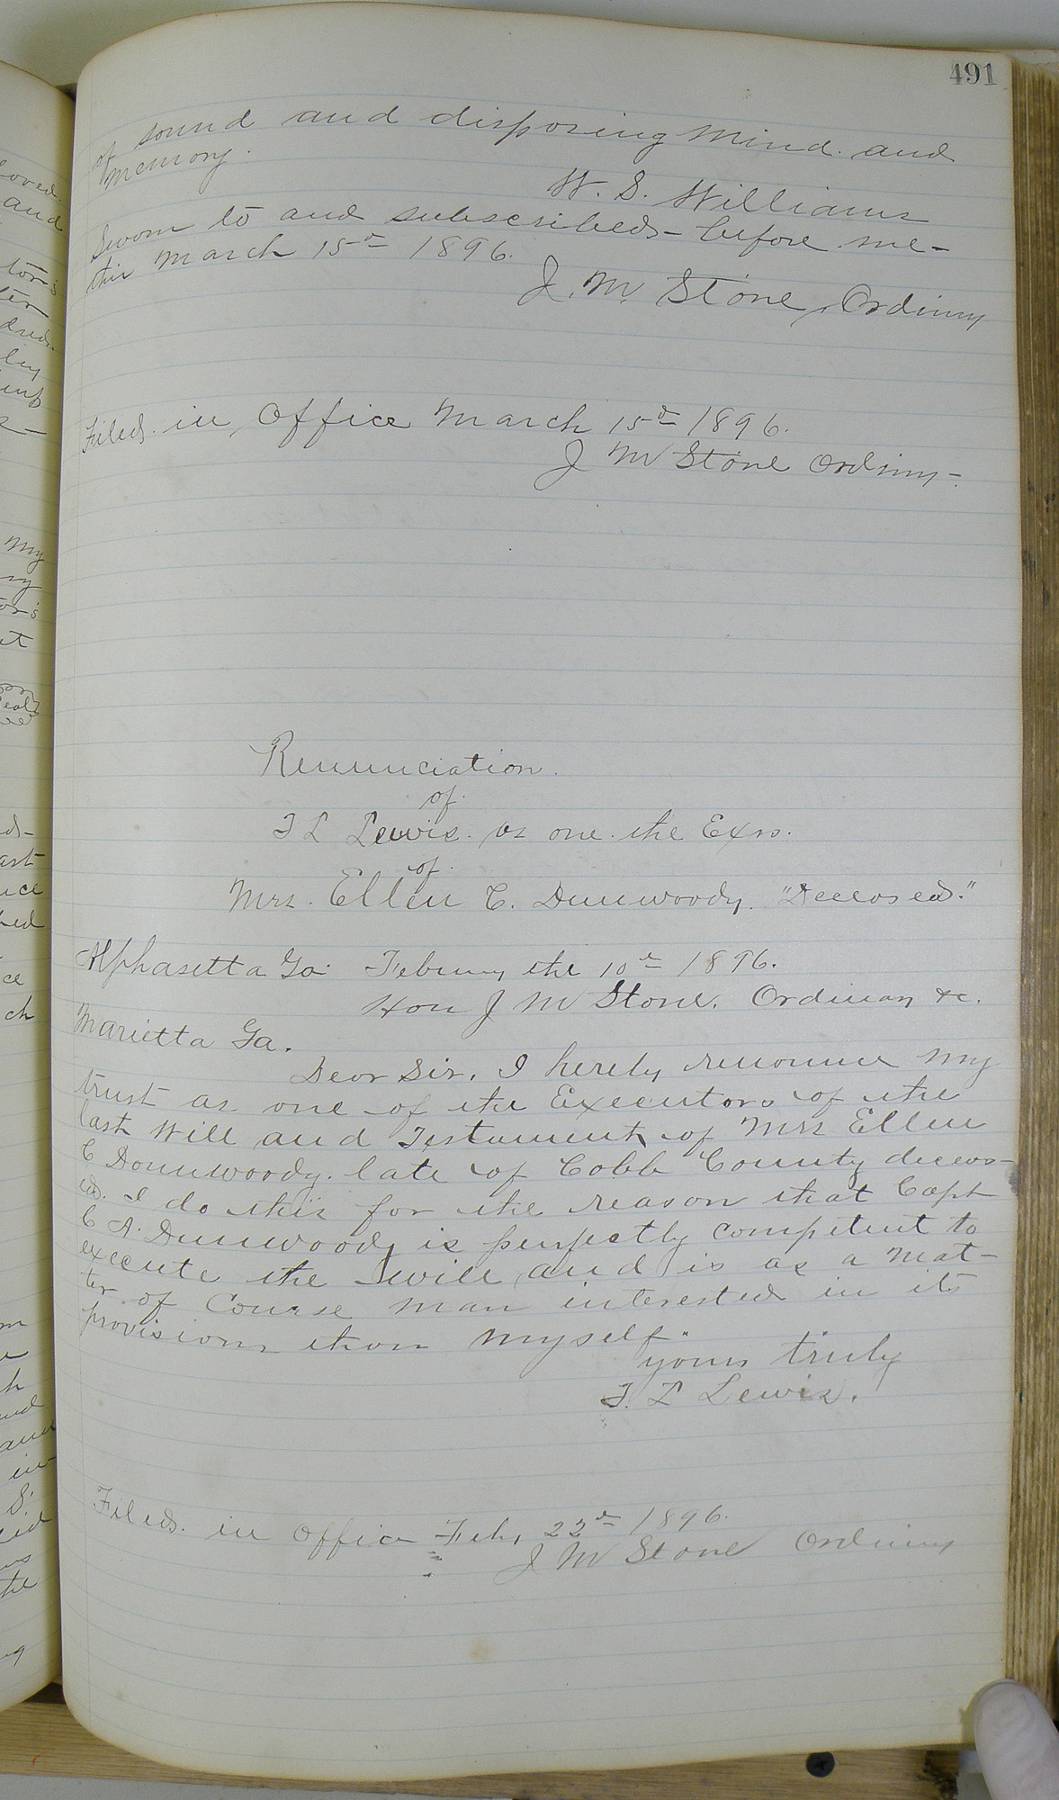 491
of sound and disposing mind and
memory.
W. S. Williams
Sworn to and subscribed before me
this March 15th 1896.
J. M. Stone, Ordinary
Filed in Office March 15th 1896.
J M Stone Ordinary
Renunciation
of
T L Lewis as one the Exrs.
of
Mrs. Ellen C. Dunwoody. "Deceased."
Alpharetta Ga. February the 10th 1896.
Hon J M Stone. Ordinary &c.
Marietta Ga.
Dear Sir, I hereby renounce my
trust as one of the Executors of the
last Will and Testament of Mrs Ellen
C Dunwoody late of Cobb County deceas-
ed. I do this for the reason that Capt
C A. Dunwoody is perfectly competent to
execute the will and is as a mat-
ter of Course man interested in its
provisions than myself.
yours truly
T. L Lewis.
Filed in office Feb, 22nd 1896.
J M Stone Ordinary